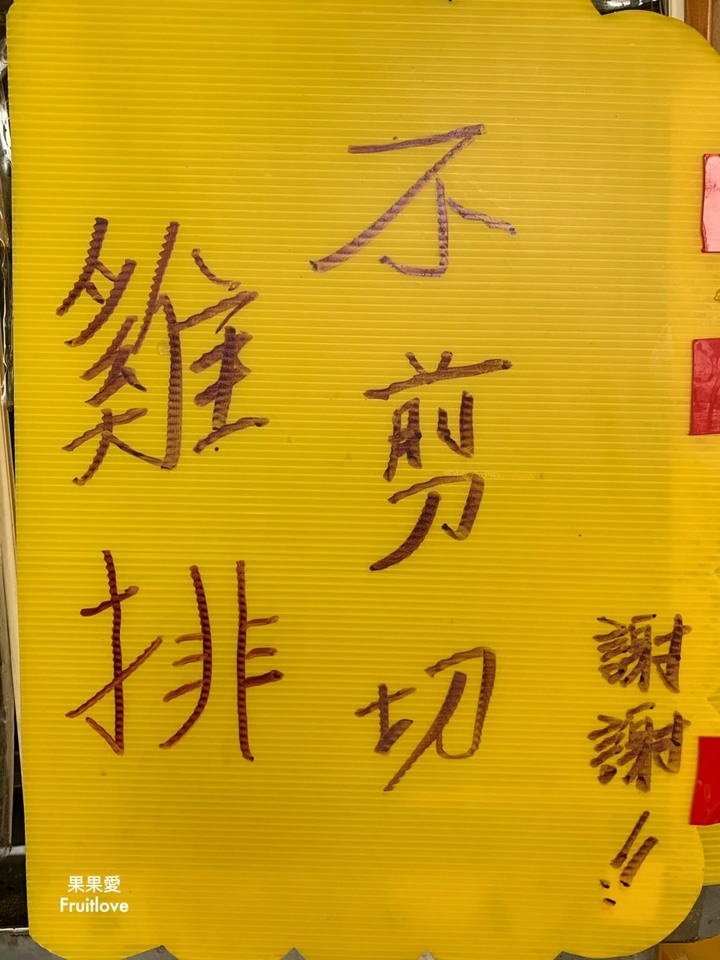 雞排
不剪切
謝謝!!
果果愛
Fruitlove